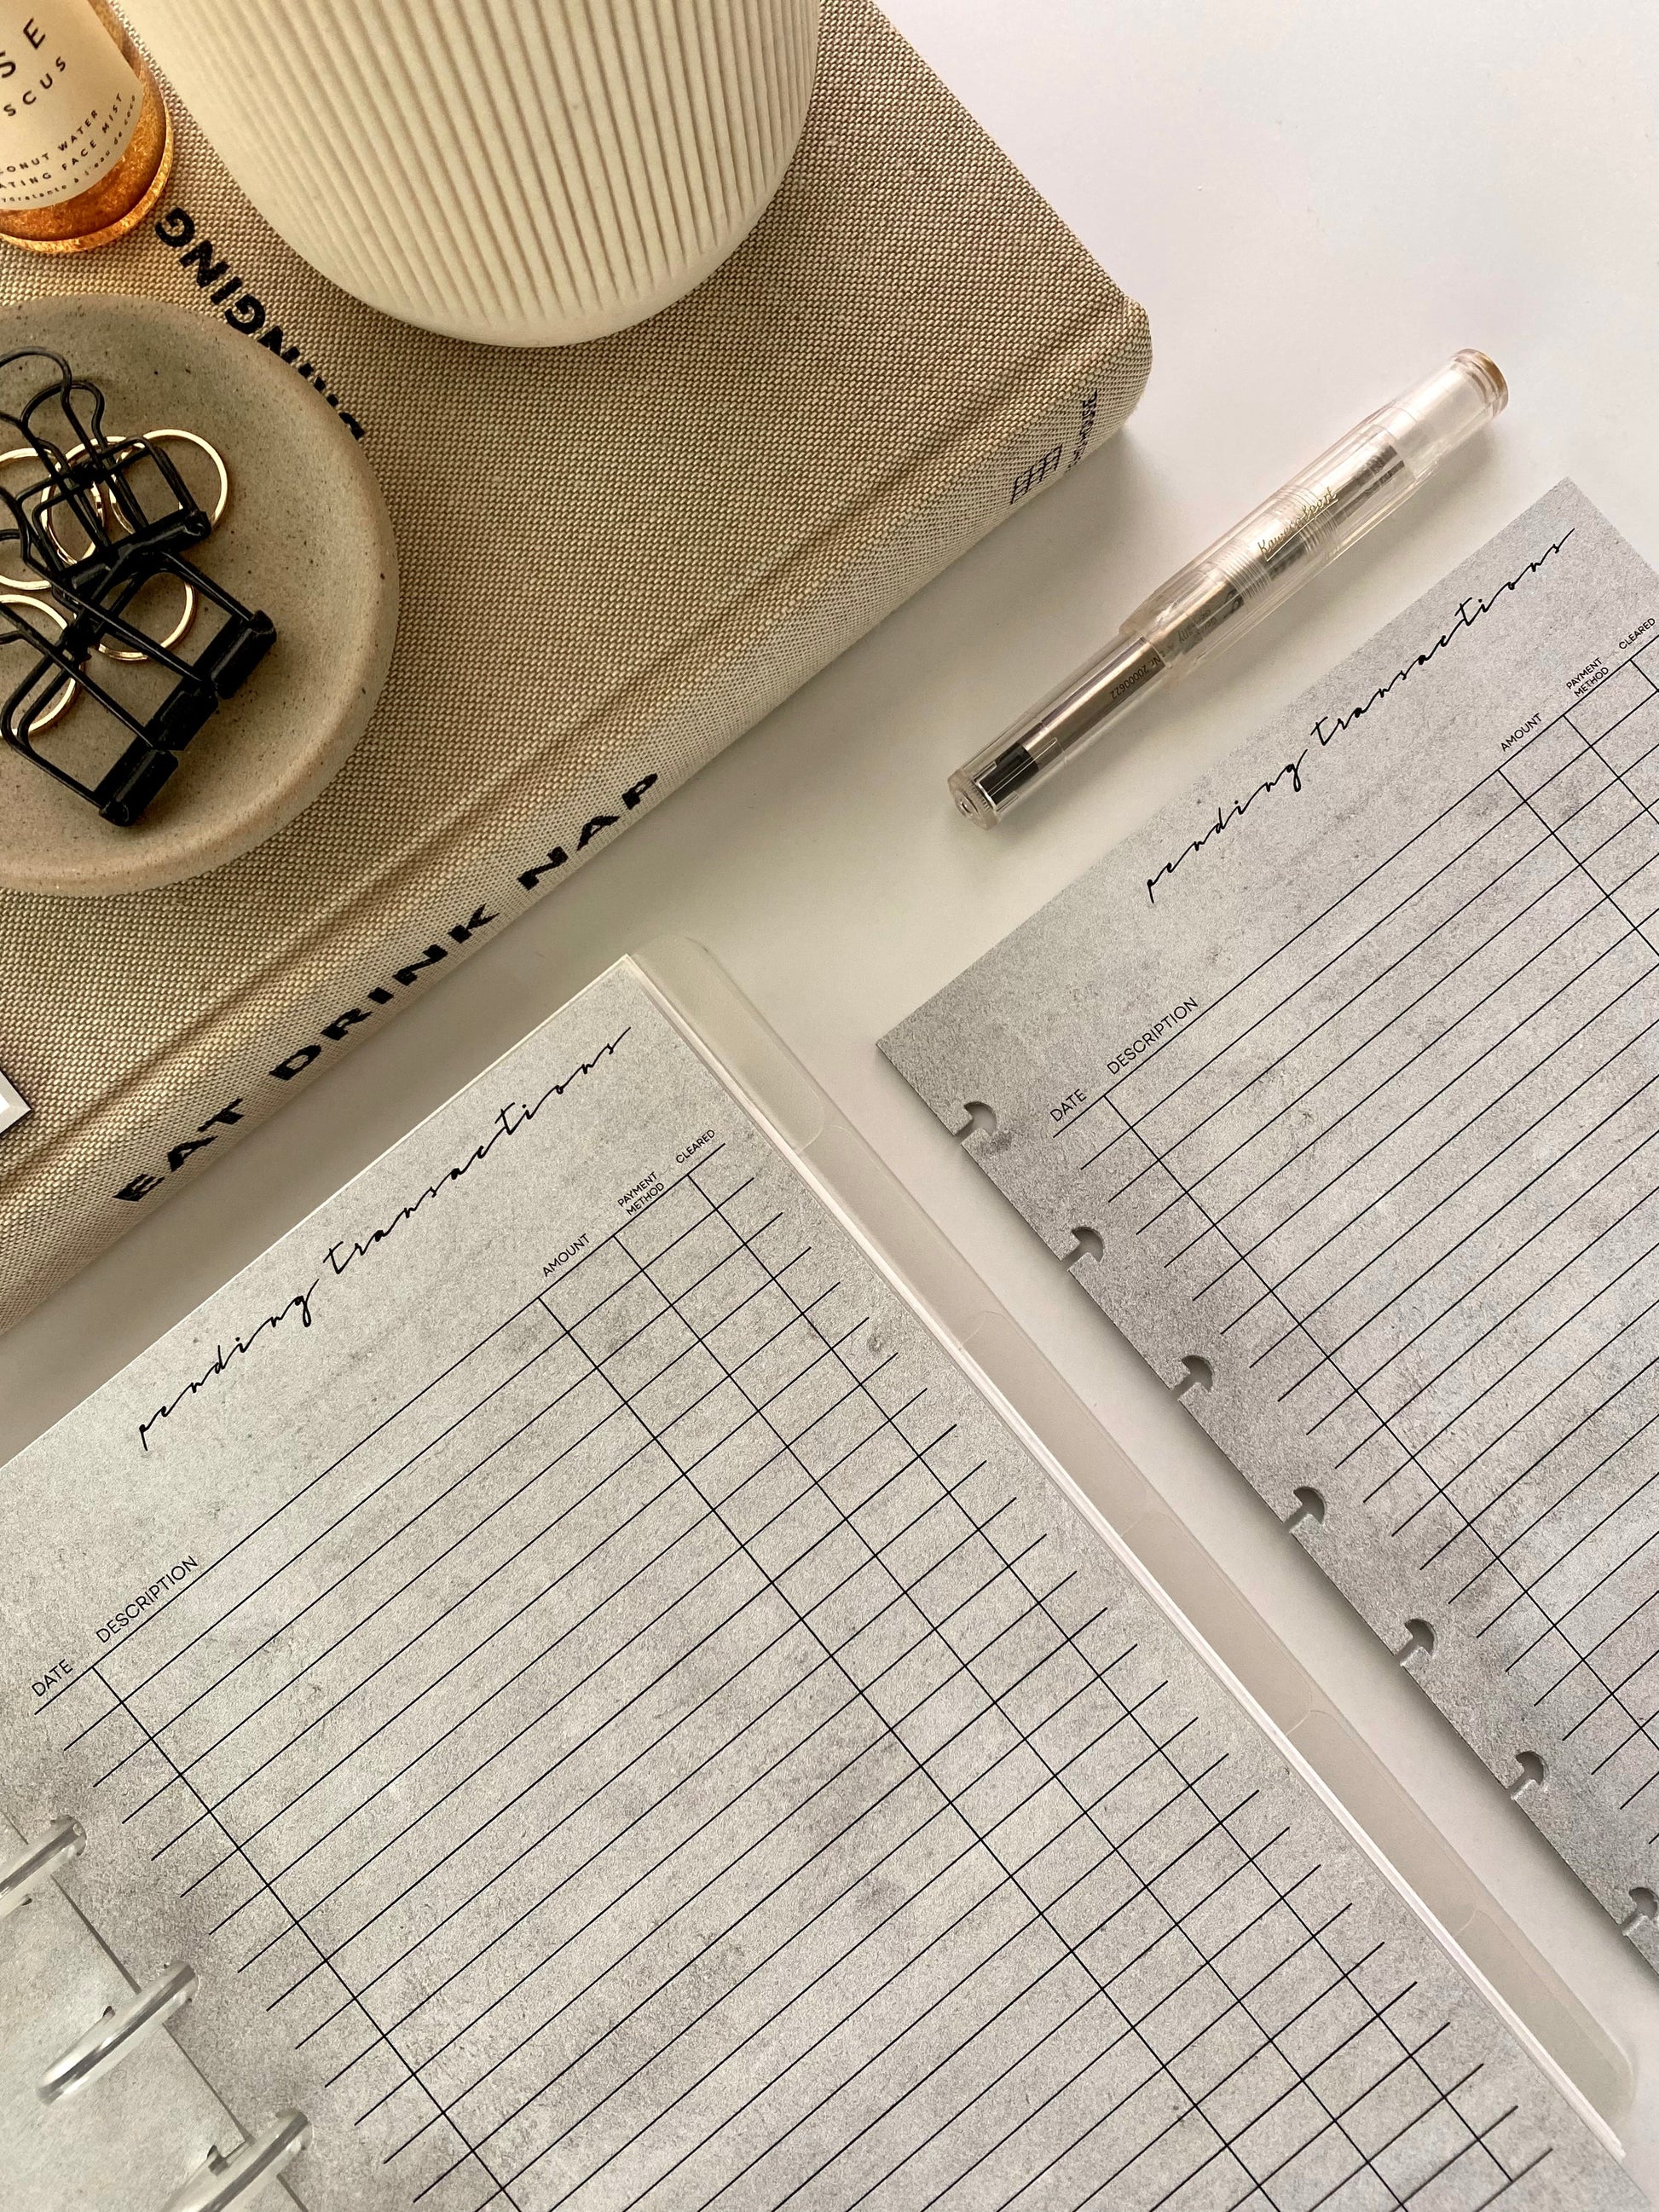 SE
SCUS
CONUT WATER
ATING FACE MIST
ydratante à l'eau de coco
NGING
EAT DRINK NAP
Kaweco
pending transactions
DATE DESCRIPTION AMOUNT PAYMENT METHOD CLEARED
pending transactions
DATE DESCRIPTION AMOUNT PAYMENT METHOD CLEARED